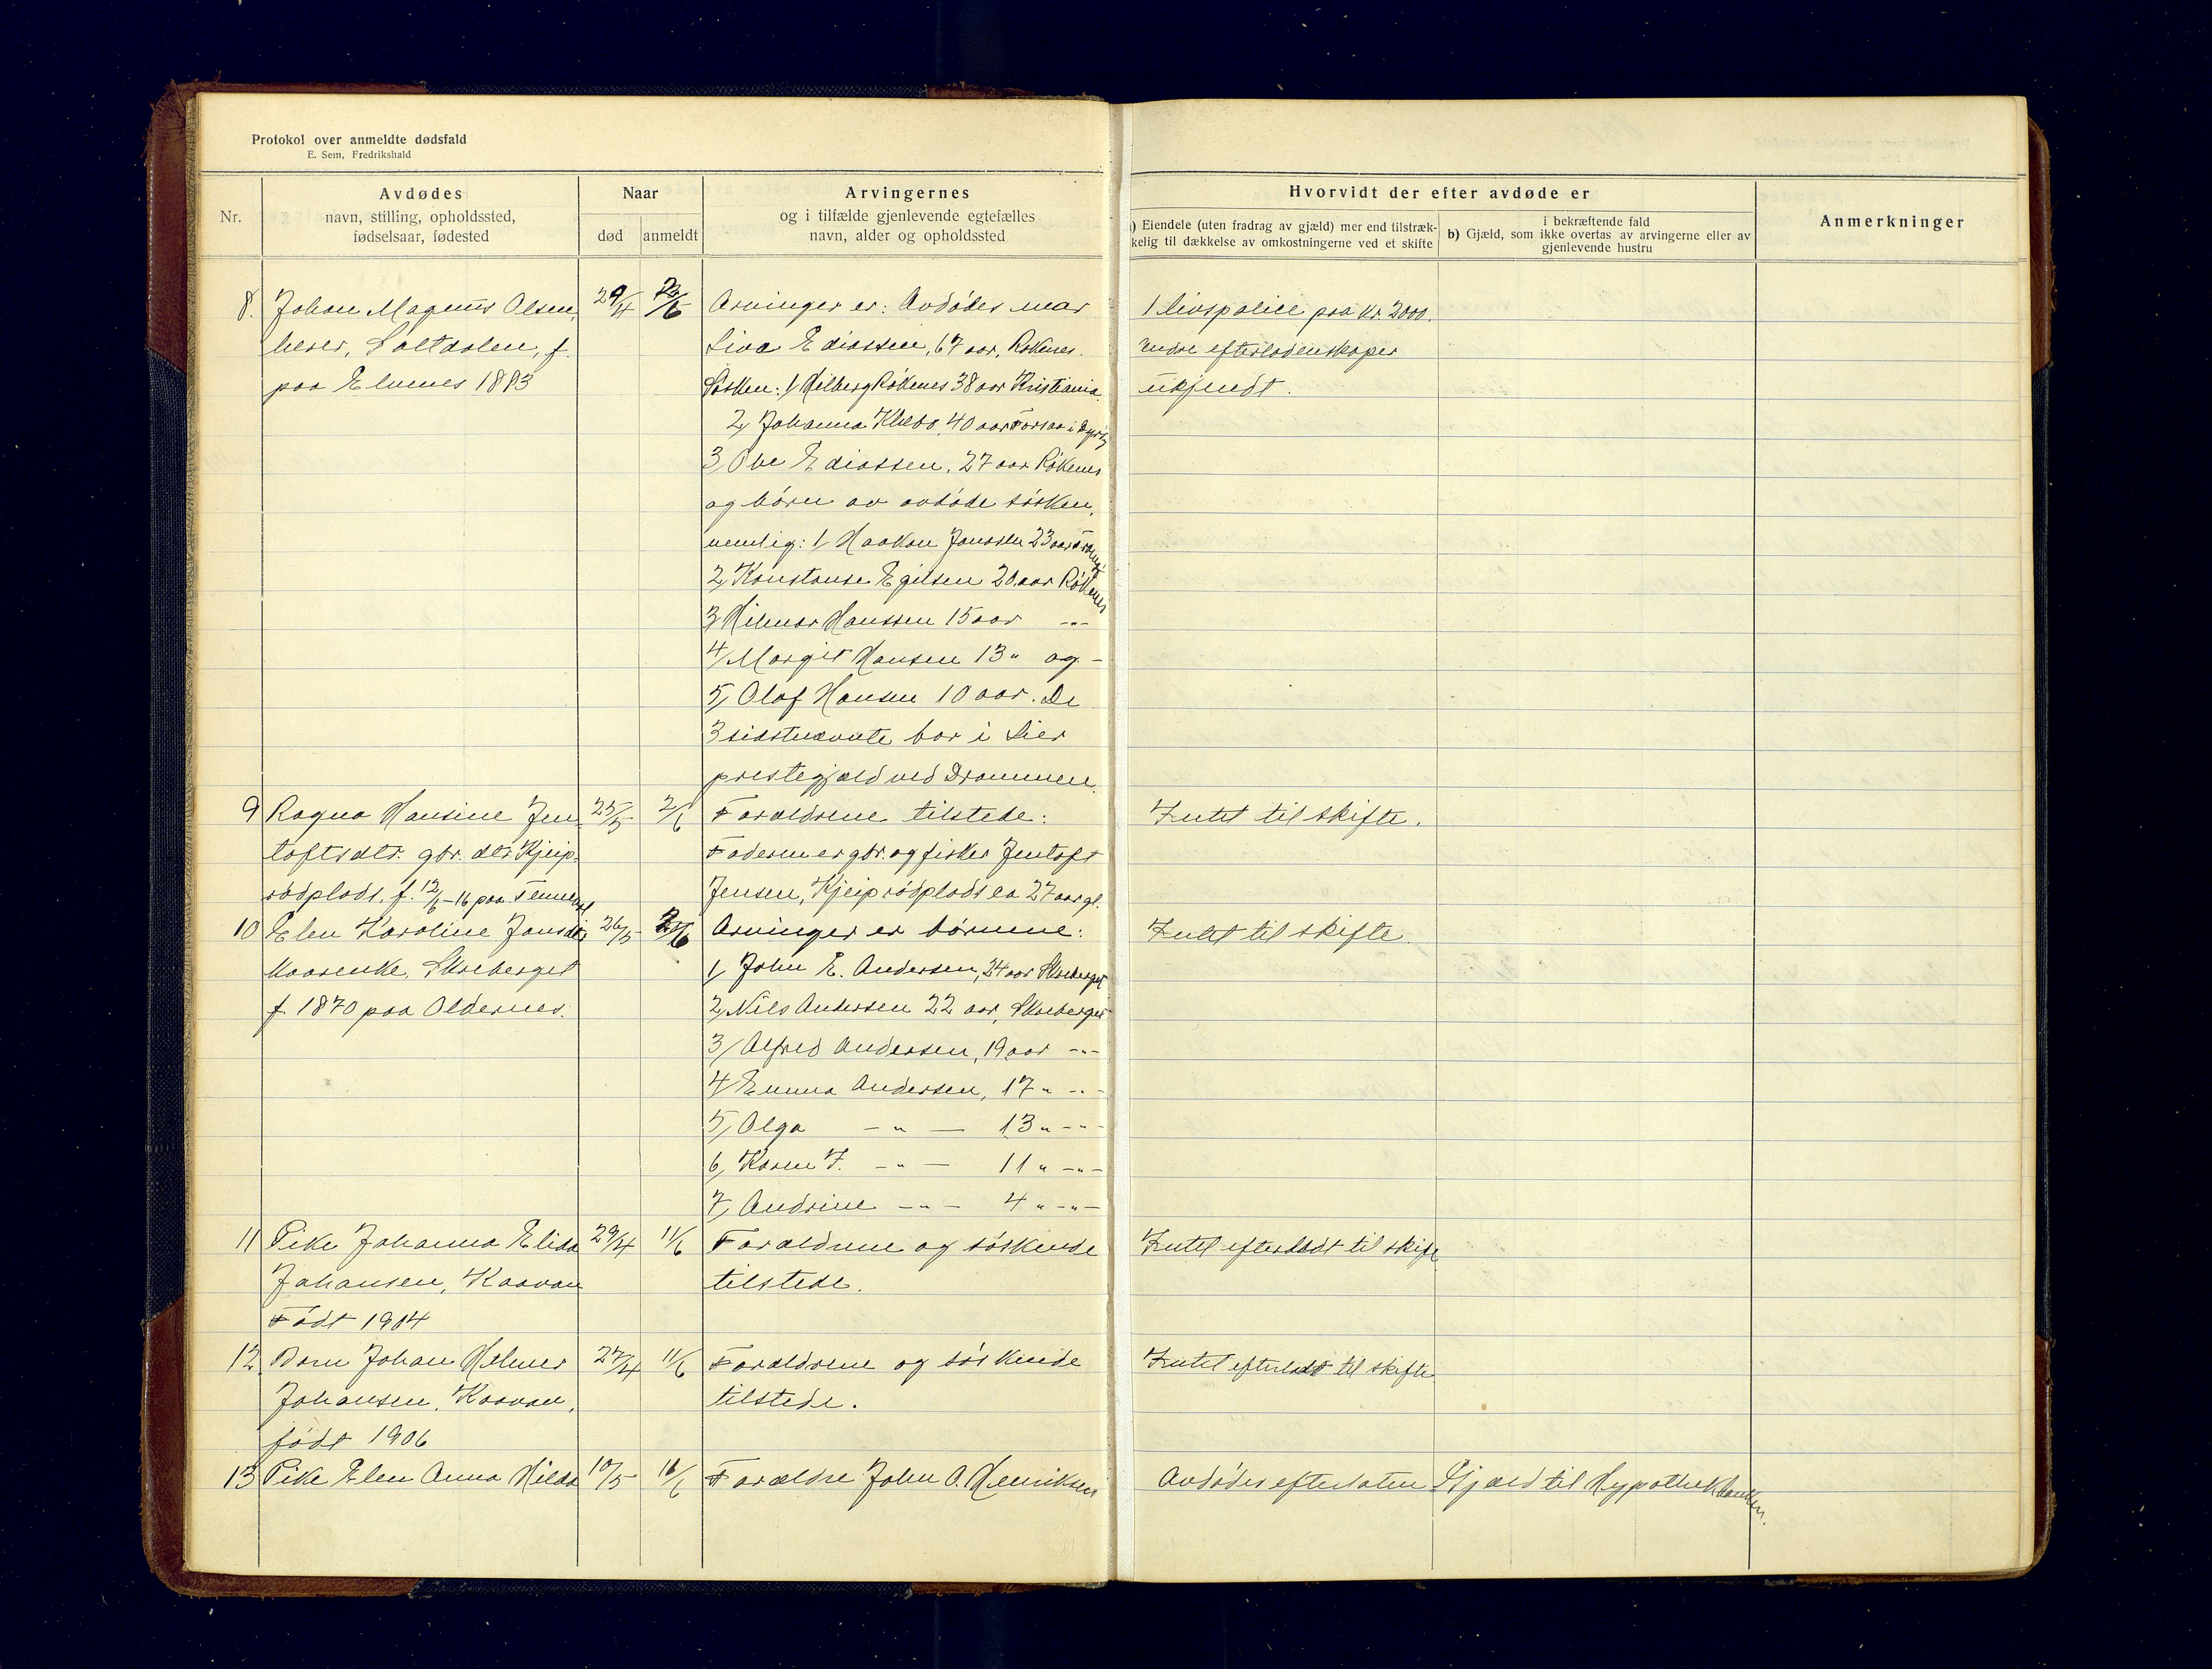 Protokol over anmeldte dødsfald
E. Sem, Fredrikshald
Nr.
Avdødes
navn, stilling, opholdssted,
fødselsaar, fødested
Naar
død
anmeldt
Arvingernes
og i tilfælde gjenlevende egtefælles
navn, alder og opholdssted
Hvorvidt der efter avdøde er
a) Eiendele (uten fradrag av gjæld) mer end tilstræk-
kelig til dækkelse av omkostningerne ved et skifte
i bekræftende fald
b) Gjæld, som ikke overtas av arvingerne eller av
gjenlevende hustru
Anmerkninger
8. Johan Magnus Olsen, 29/4 Arvinger er: Avdødes mor 1 livspolice paa kr. 2000.
lærer, Saltdalen, f. Ediassen, 67 aar, Røkenes. Andre efterladenskaper
paa Elvenes 1883 Søsken: 1, Røkenes 38 aar Kristiania. ukjendt.
2, Johanna Klæbo, 40 aar i
3, Ove Ediassen, 27 aar Røkenes
og børn av avdøde søsken,
nemlig: 1, Haakon Jonassen 23 aar
2, Konstanse Egilsen 20 aar Røkenes
3, Hilmar Hanssen 15 aar -"-
4, Margit Hansen 13 " og -
5, Olaf Hansen 10 aar. De
3 sidstnævnte bor i Lier
prestegjæld ved Drammen.
9 Ragna Hansine Jen 25/5 2/6 Forældrene tilstede: Intet til skifte.
toftsdtr. gbr. dtr. Kjeip- Faderen er gbr. og fisker Jentoft
rødplads. f. 12/6-16 paa Jensen, Kjeiprødplads ca 27 aar gl.
10 Elen Karoline Jonsdtr 26/5 Arvinger er børnene: Intet til skifte.
Skoeberget 1, John E. Andersen, 24 aar Skoeberget
f. 1870 paa Oldernes. 2, Nils Andersen 22 aar, Skoeberget
3, Alfred Andersen, 19 aar -"-
4, Emma Andersen, 17 " -"-
5, Olga -"- 13 " -"-
6, Karen J. -"- 11 " -"-
7, Andrine -"- 4 " -"-
11 Pike Johanna Elida 29/4 11/6 Forældrene og søskende Intet efterladt til skifte
Johansen, Kaavan tilstede.
Født 1904
12 Barn Johan Helmer 27/4 11/6 Forældrene og søskende Intet efterladt til skifte
Johansen, Kaavan, tilstede.
født 1906
13 Pike Elen Anna Hilda 10/5 Forældre John O. Henriksen Avdødes efterlatne Gjæld til Hypothekbanken.